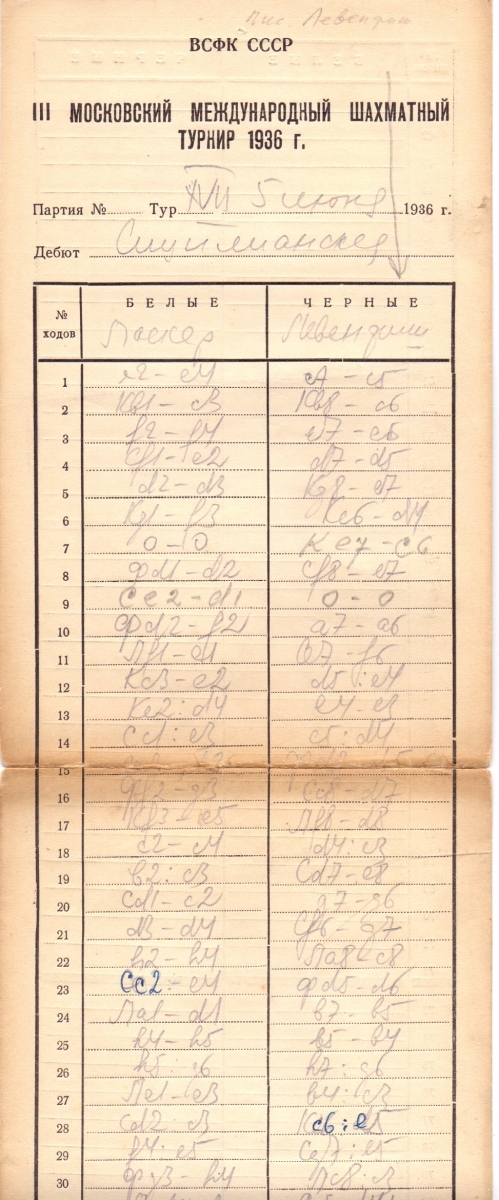 Левенфиш
ВСФК СССР
III МОСКОВСКИЙ МЕЖДУНАРОДНЫЙ ШАХМАТНЫЙ
ТУРНИР 1936 г.
Партия № Тур 5 июня 1936 г.
Дебют Сицилианская
№ ходов БЕЛЫЕ ЧЕРНЫЕ
Ласкер Левенфиш
1 e2 - e4 c5
2 Кb1 - c3 Кb8 - c6
3 f2 - f4 e7 - e6
4 Cf1 - e2 d7 - d5
5 d2 - d3 Кg8 - e7
6 Кg1 - f3 Кc6 - d4
7 0 - 0 Кe7 - c6
8 Фd1 - d2 Cf8 - e7
9 Сe2 - d1 0 - 0
10 Фd2 - f2 a7 - a6
11 Лf1 - e1 f6
12 Кc3 - e2 d5 : e4
13 Кe2 : d4 e4 - e3
14 Сc1 : e3 c5 : d4
15
16 Фf2 - g3 Сc8 - d7
17 Кf3 - e5 Лf8 - d8
18 c2 - c4 d4 : c3
19 b2 : c3 Сd7 - e8
20 Сd1 - c2 g7 - g6
21 d3 - d4 Сf6 - g7
22 h2 - h4 Лa8 - c8
23 Сc2 - e4 Фd5 - d6
24 Лa1 - d1 b7 - b5
25 h4 - h5 b5 - b4
26 h5 : g6 h7 : g6
27 Лe1 - e3 b4 : c3
28 Сd2 : c3 Кc6 : e5
29 f4 : e5 Сg7 : e5
30 Фg3 - h4 Лc8 : c3